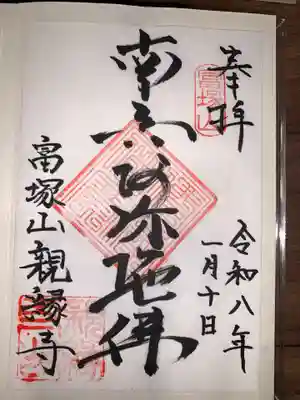 奉拝
高塚山
令和八年
一月十日
南無阿弥陀佛
高塚山親縁寺